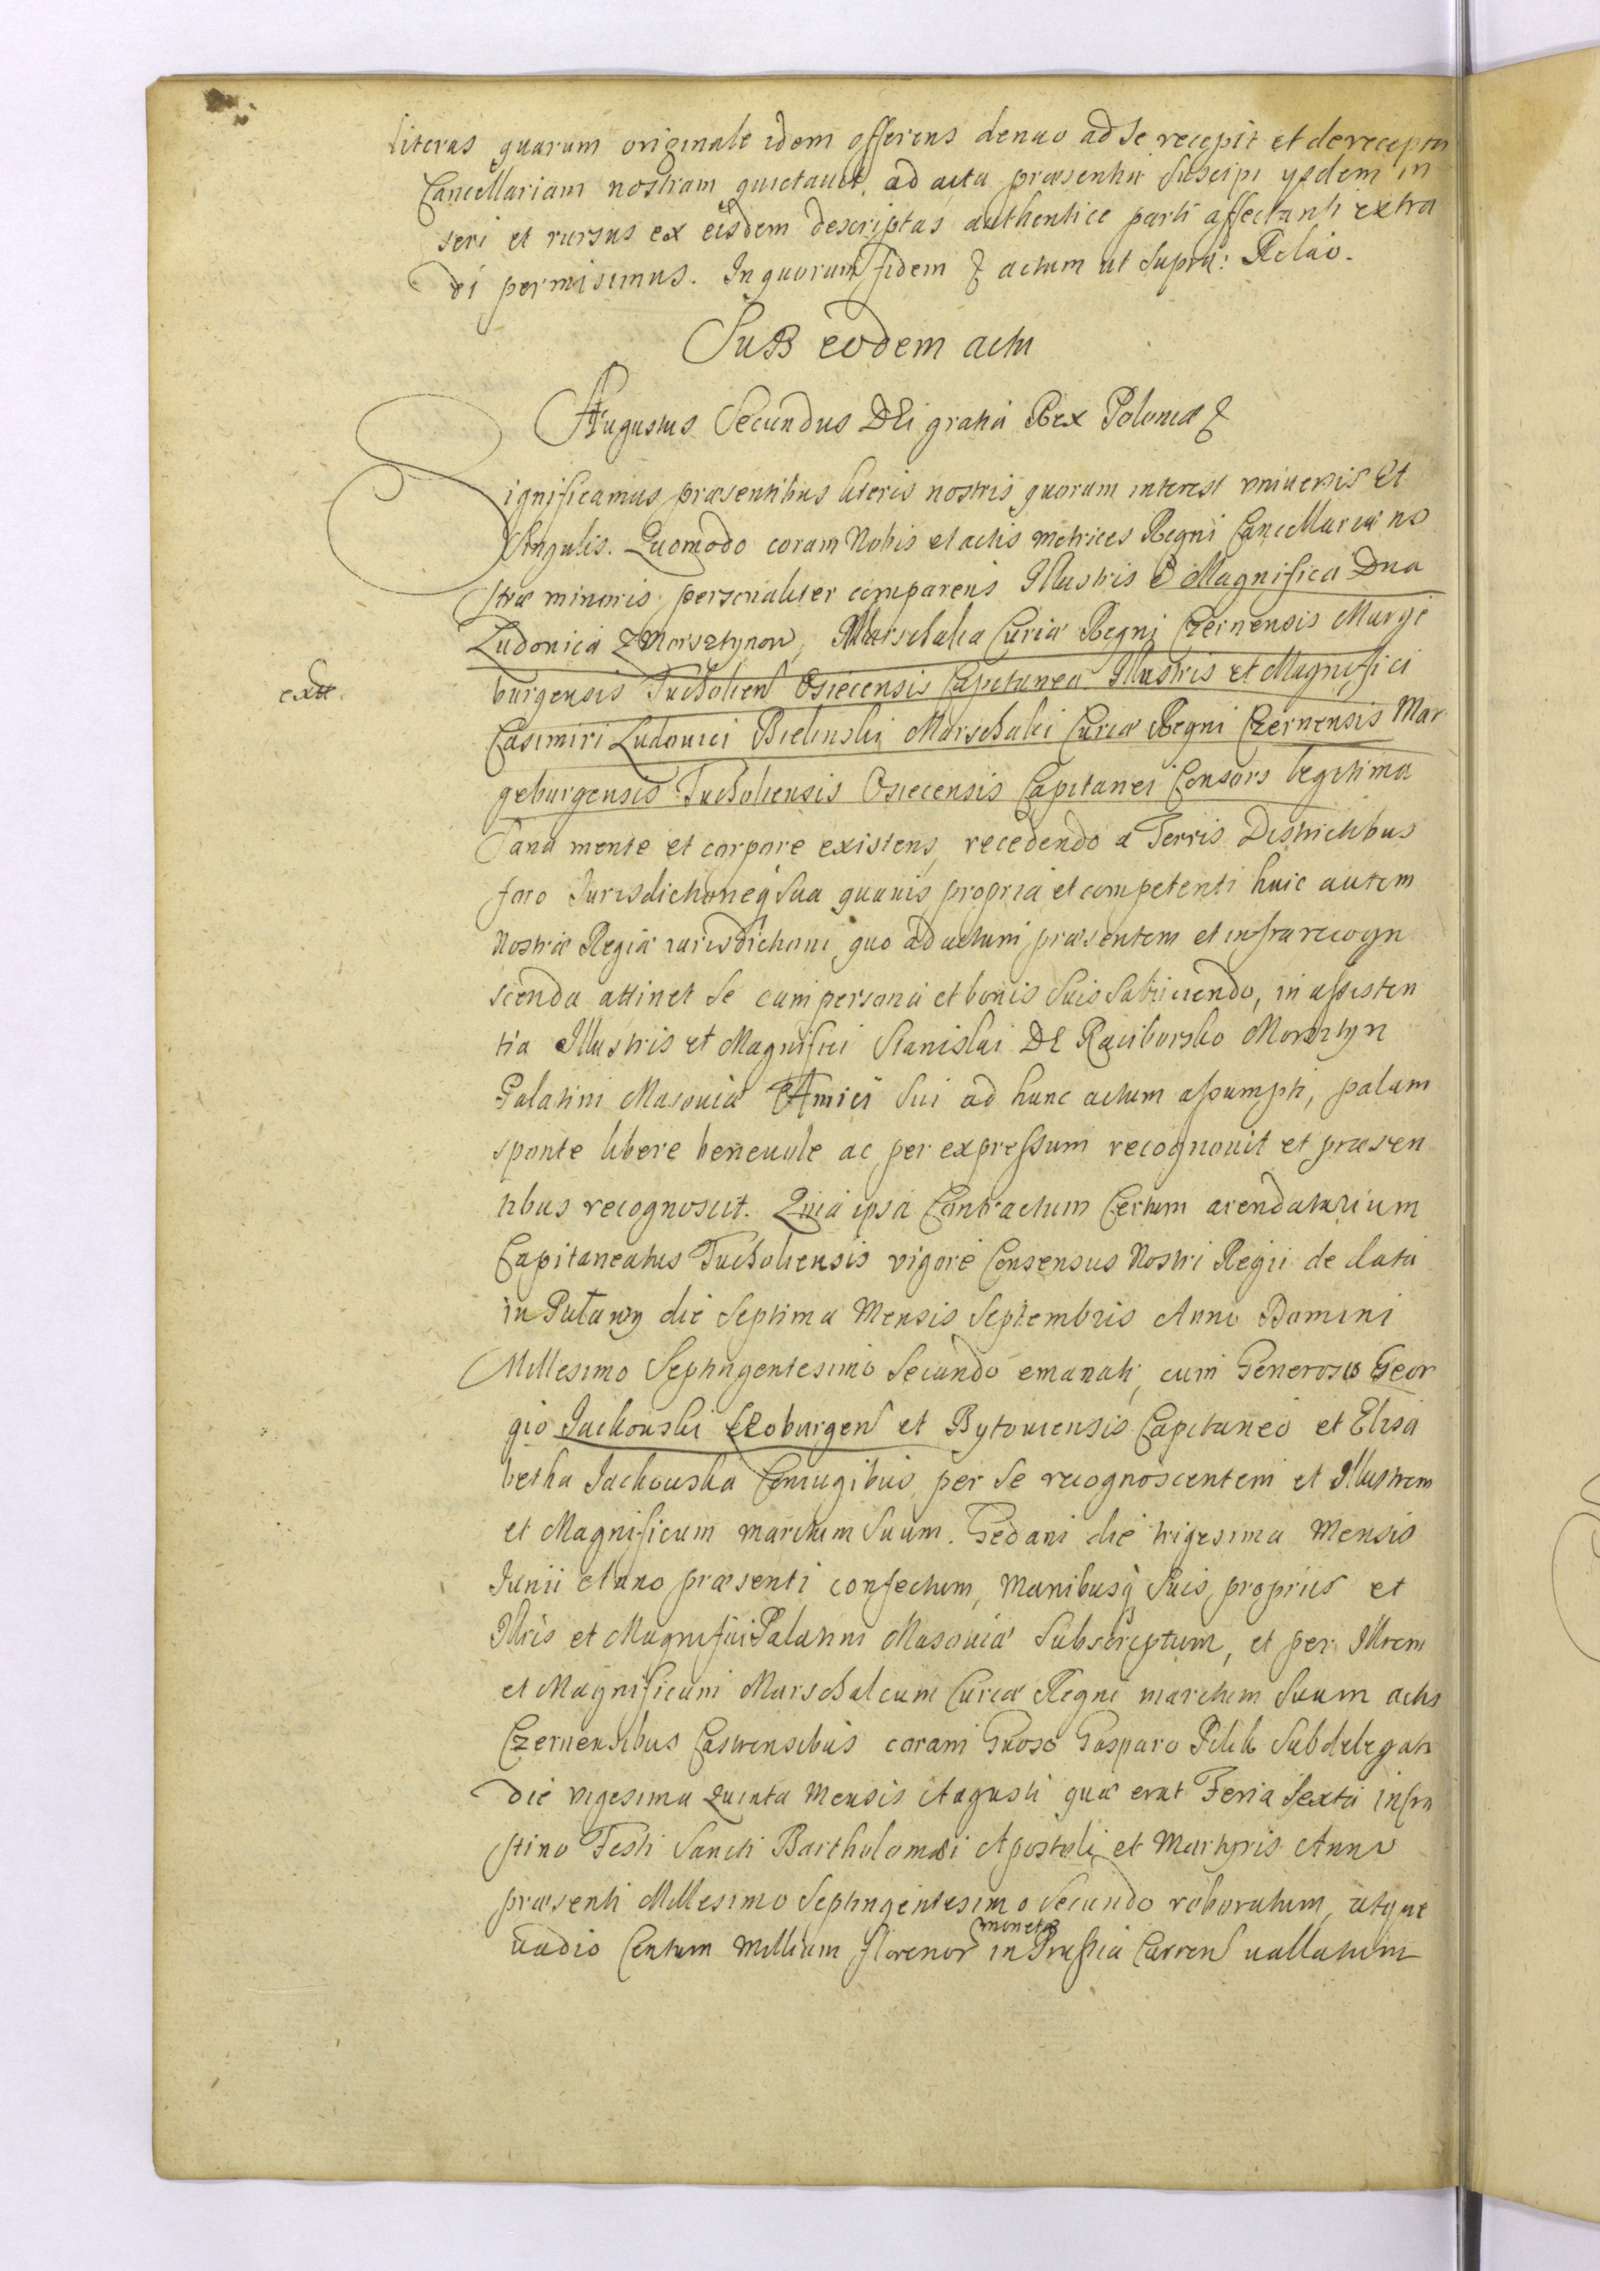 literas quarum originale idem offerens denuo ad se recepit et de recepto
Cancellariam nostram quietauit, ad acta præsentia suscipi ysdem in
seri et rursus ex eisdem descriptas authentice parti affectanti extra
di permisimus. In quorum fidem & actum ut supra: Relaõ.
SuB eodem actu
Augustus Secundus DEi gratia Rex Poloniæ &
Significamus præsentibus literis nostris quorum interest vniuersis Et
Singulis. Quomodo coram Nobis et actis metrices Regni Cancellariæ no
stræ minoris personaliter comparens Illustris & Magnifica Dna
Ludonica Z Morsztynow, Marschalca Curiæ Regni Czernensis Marge
exte.
burgensis Tucholien Osiecensis Capitanea Illustris et Magnifici
Casimiri Ludouici Bielinski Marschalci Curiæ Regni Czernensis Mar
geburgensis Tucholiensis Osiecensis Capitanei Consors legitima
Sana mente et corpore existens, recedendo a Terris Districtibus
foro Iurisdictioneq sua quauis propria et competenti huic autem
Nostræ Regiæ iurisdictioni quo ad actum præsentem et infra recogn
scenda attinet se cum persona et bonis suis subiiciendo, in assisten
tia Illustris et Magnifici Stanislai DE Raciborsko Morsztyn
Palatini Masouiæ Amici sui ad hunc actum assumpti, palam
sponte libere beneuole ac per expressum recognouit et præsen
tibus recognoscit. Quia ipsa Contractum Certum arendatarium
Capitaneatus Tucholiensis vigore Consensus Nostri Regii de data
in Puławy die Septima Mensis Septembris Anno Domini
Millesimo Septingentesimo Secundo emanati, cum Generosis Geor
gio Jackouski Szoburgen et Bytouiensis Capitaneo et Elisa
betha Jackouska Coniugibus, per se recognoscentem et Illustrem
et Magnificum maritum suum. Gedani die trigesima Mensis
Iunii Anno præsenti confectum, Manibusq suis propriis et
Illris et Magnifici Palatini Masouiæ subscriptum, et per Illrem
et Magnificum Marschalcum Curiæ Regni maritum suum actis
Czernensibus Castrensibus coram Gnoso Gasparo Pilik Subdelegato
die vigesima Quinta Mensis Augusti quæ erat Feria Sexta in cra
stino Festi Sancti Bartholomæi Apostoli et Martyris Anno
præsenti Millesimo Septingentesimo Secundo roboratum, atque
monetæ
uadio Centum Millium florenor in Prussia Curren uallatum